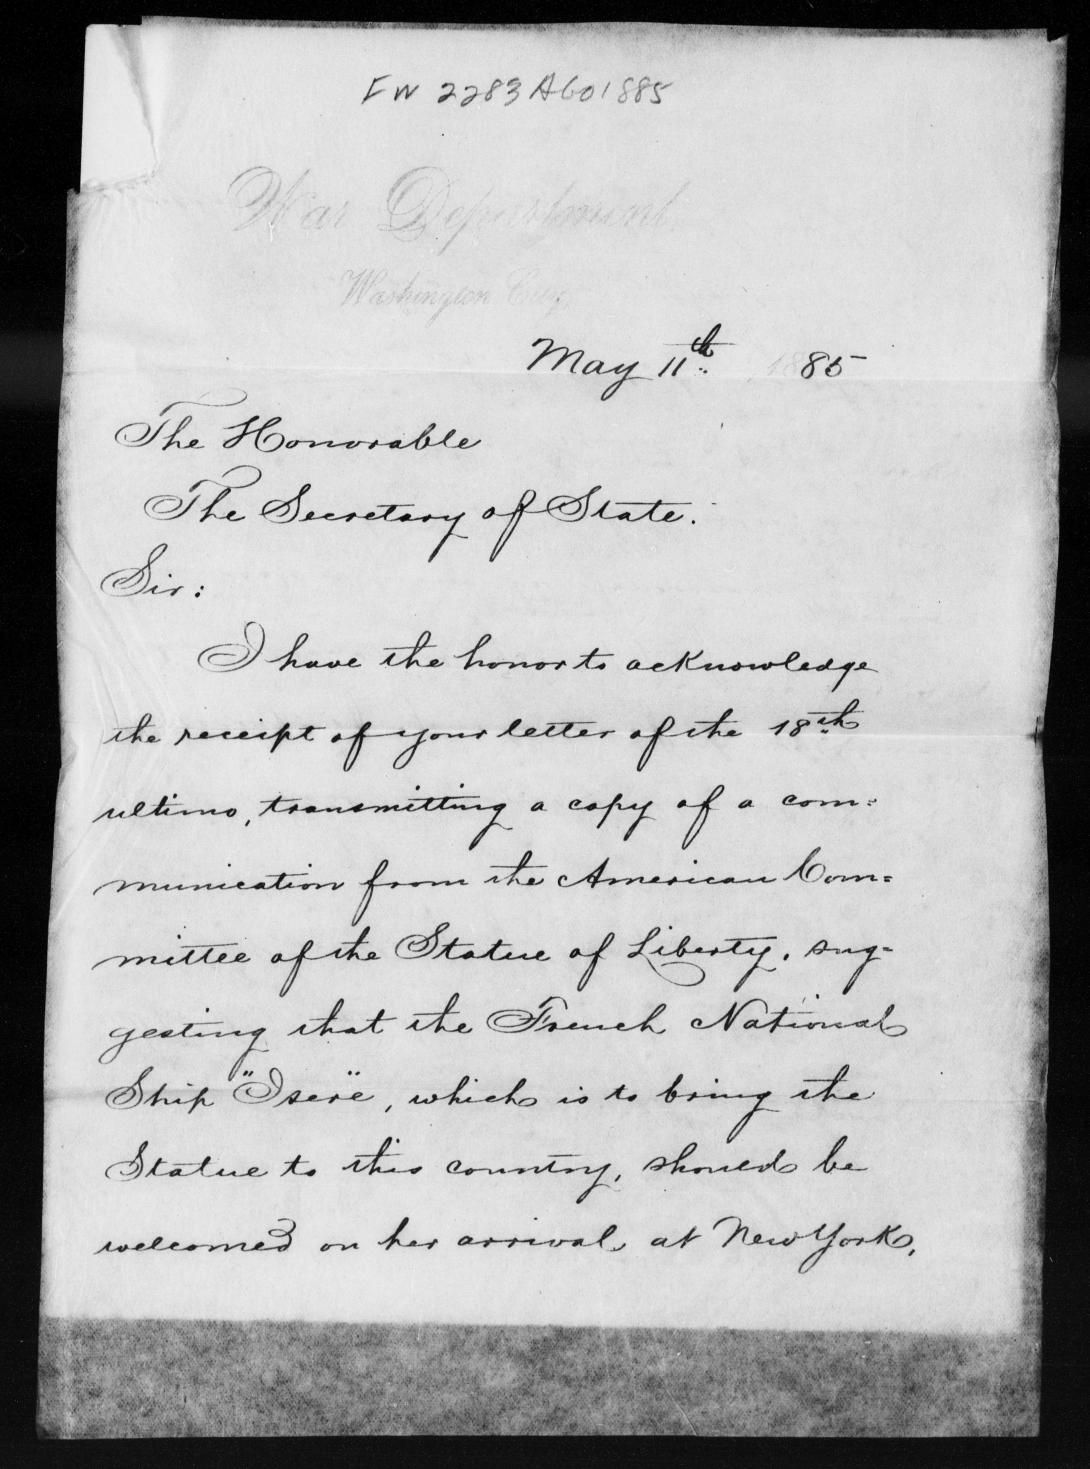 F W 2283 AGO 1885
War Department,
Washington City,
May 11th, 1885
The Honorable
The Secretary of State.
Sir:
I have the honor to acknowledge
the receipt of your letter of the 18th
ultimo, transmitting a copy of a com=
munication from the American Com=
mittee of the Statue of Liberty, sug=
gesting that the French National
Ship "Isere", which is to bring the
Statue to this country, should be
welcomed on her arrival at New York,